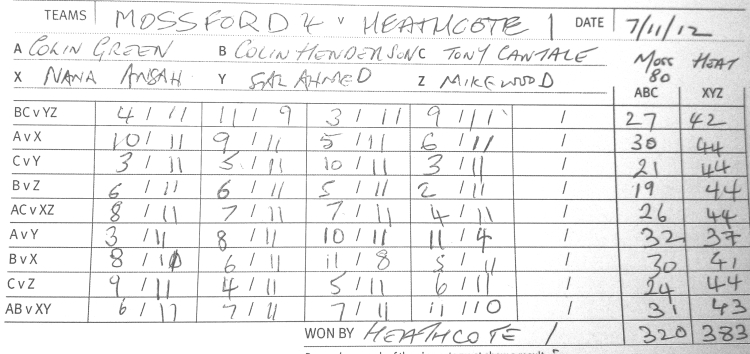 TEAMS MOSSFORD 4 v HEATHCOTE 1 DATE 7/11/12
A COLIN GREEN B COLIN HENDERSON C TONY CANTALE MOSS 80 HEAT
X NANA ANSAH Y GAZ AHMED Z MIKE WOOD ABC XYZ
BC v YZ 4 / 11 11 / 9 3 / 11 9 / 11 / 27 42
A v X 10 / 11 9 / 11 5 / 11 6 / 11 / 30 44
C v Y 3 / 11 5 / 11 10 / 11 3 / 11 / 21 44
B v Z 6 / 11 6 / 11 5 / 11 2 / 11 / 19 44
AC v XZ 8 / 11 7 / 11 7 / 11 4 / 11 / 26 44
A v Y 3 / 11 8 / 11 10 / 11 11 / 4 / 32 37
B v X 8 / 11 6 / 11 11 / 8 5 / 11 / 30 41
C v Z 9 / 11 4 / 11 5 / 11 6 / 11 / 24 44
AB v XY 6 / 11 7 / 11 7 / 11 11 / 10 / 31 43
WON BY HEATHCOTE 1 320 383